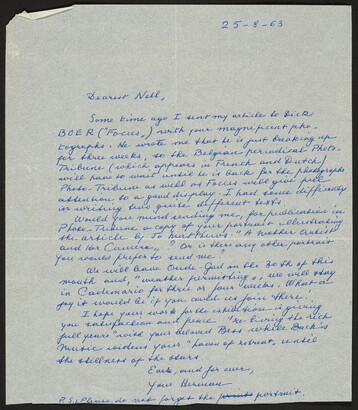 25-8-63
Dearest Nell,
Some time ago I sent my article to Dick
BOER ("Focus") with your magnificent pho-
tographs. He wrote me that he is just breaking up
for three weeks, so the Belgian periodical Photo-
Tribune (which appears in French and Dutch)
will have to wait until he is back for the photographs
Photo-Tribune as well as Focus will give
attention to a good display. I had some difficulty
in writing two quite different texts.
Would you mind sending me, for publication in
Photo-Tribune a copy of your portrait illustrating
the article by "A Master Artist
and Her Camera"? Or is there any other portrait
you would prefer to send me?
We will leave Oude-God on the 30th of this
month and, "weather permitting", we will stay
in for three or four weeks. What a
joy it would be if you could us join there.
I hope your work for the exhibition is giving
you satisfaction and peace. the rich
full years with your beloved Bess while Bach's
music widens your "haven of retreat,
the stillness of the stars
and for ever,
Your Herman
P.S. Please do not forget the portrait.